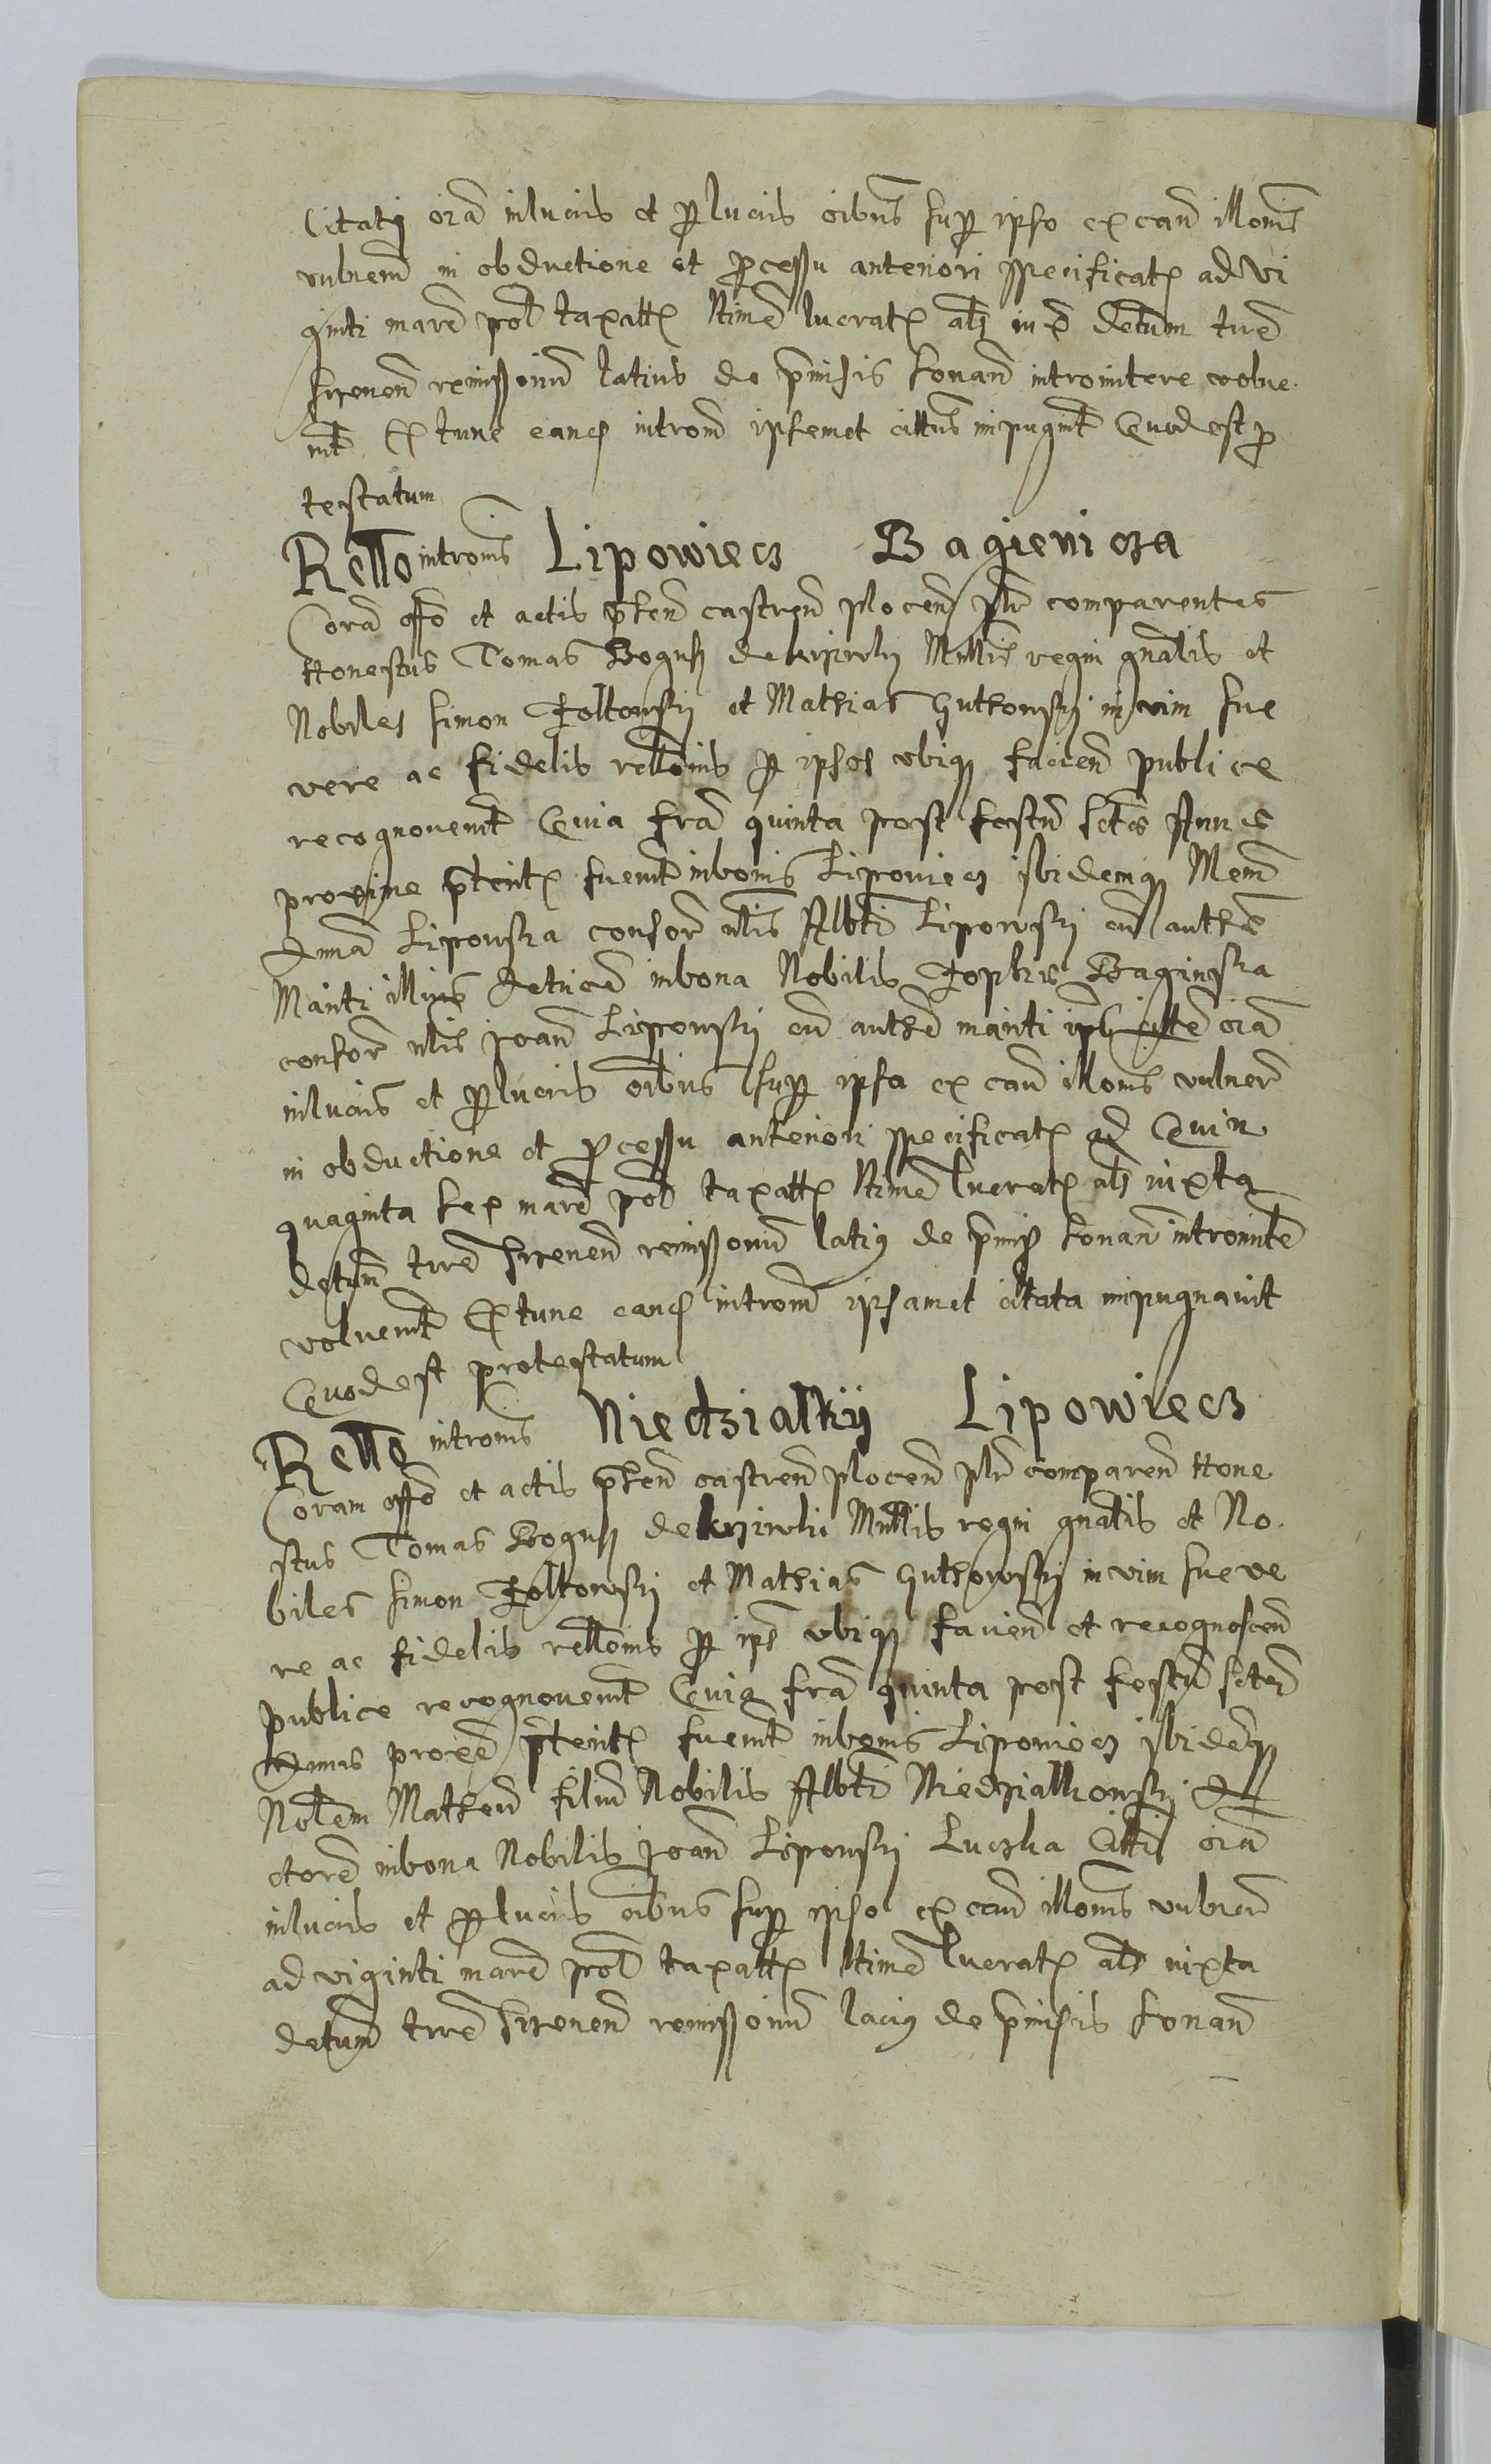 Citatq oia inlucris et p lucris oibus sup ipso ex caus illonis
vulnerum in obductione et pcessu anteriori specificatis ad vi
ginti marc pol taxatis Stimen lucratis als iux Detum tire
sweuen remissionum latius de pmissis sonan intromitere volue
rut Ex tunc eandem introm ipsemet cittus impugnit Quod est p
testatum
Rello introms Lipowiecz Bagienicza
Cora offo et actis pñten castren plocen plr comparentes
Honestus Tomas Bogusz de Mnllis regni gnalis et
Nobiles Simon Zoltowsky et Mathias Guthowsky in vim sue
vere ac fidelis rellonis p ipsos ubiq facien publice
recognoverut Quia fra quinta post festu sctae Annae
proxime pterit fuerut inbonis Lipowiecz ibidemq Mem
Anna Lipowska consor nlis Albti Lipowsky cu auth
Mariti illius Actrice inbona Nobilis Zophie Baginska
consor nlis Joan Lipowsky cu auth mariti ips Citte oia
inlucris et p lucris oibus sup ipsa ex caus illonis vulner
in obductione et pcessu anteriori specificatis ad Quin
quaginta sex marc pol taxatis Stimen lucratis als iuxta
detum tire sweuen remissionum latiq de pmis sonan intromitte
voluerut Ex tunc eandem introm ipsamet citata impugnavit
Quod est protestatum
Rello introms Niedzialkij Lipowiecz
Coram offo et actis pñten castren plocen plr comparen Hone
stus Tomas Bogusz de Mnllis regni gnalis et No
biles Simon Zoltowsky et Mathias Guthowsky in vim sue ve
re ac fidelis rellonis p ips ubiq facien et recognoscen
publice recognoverut Quia fra quinta post festu sctae
Annae proxe pterit fuerut inbonis Lipowiecz ibidemq
Nobilem Matheu filiu Nobilis Albti Niedzialkowsky A
ctore inbona Nobilis Joan Lipowsky Luczka Citti oia
inlucris et p lucris oibus sup ipso ex caus illonis vulner
ad viginti marc pol taxatis Stimen lucratis als iuxta
detum tire sweuen remissionum laciq de pmissis sonan